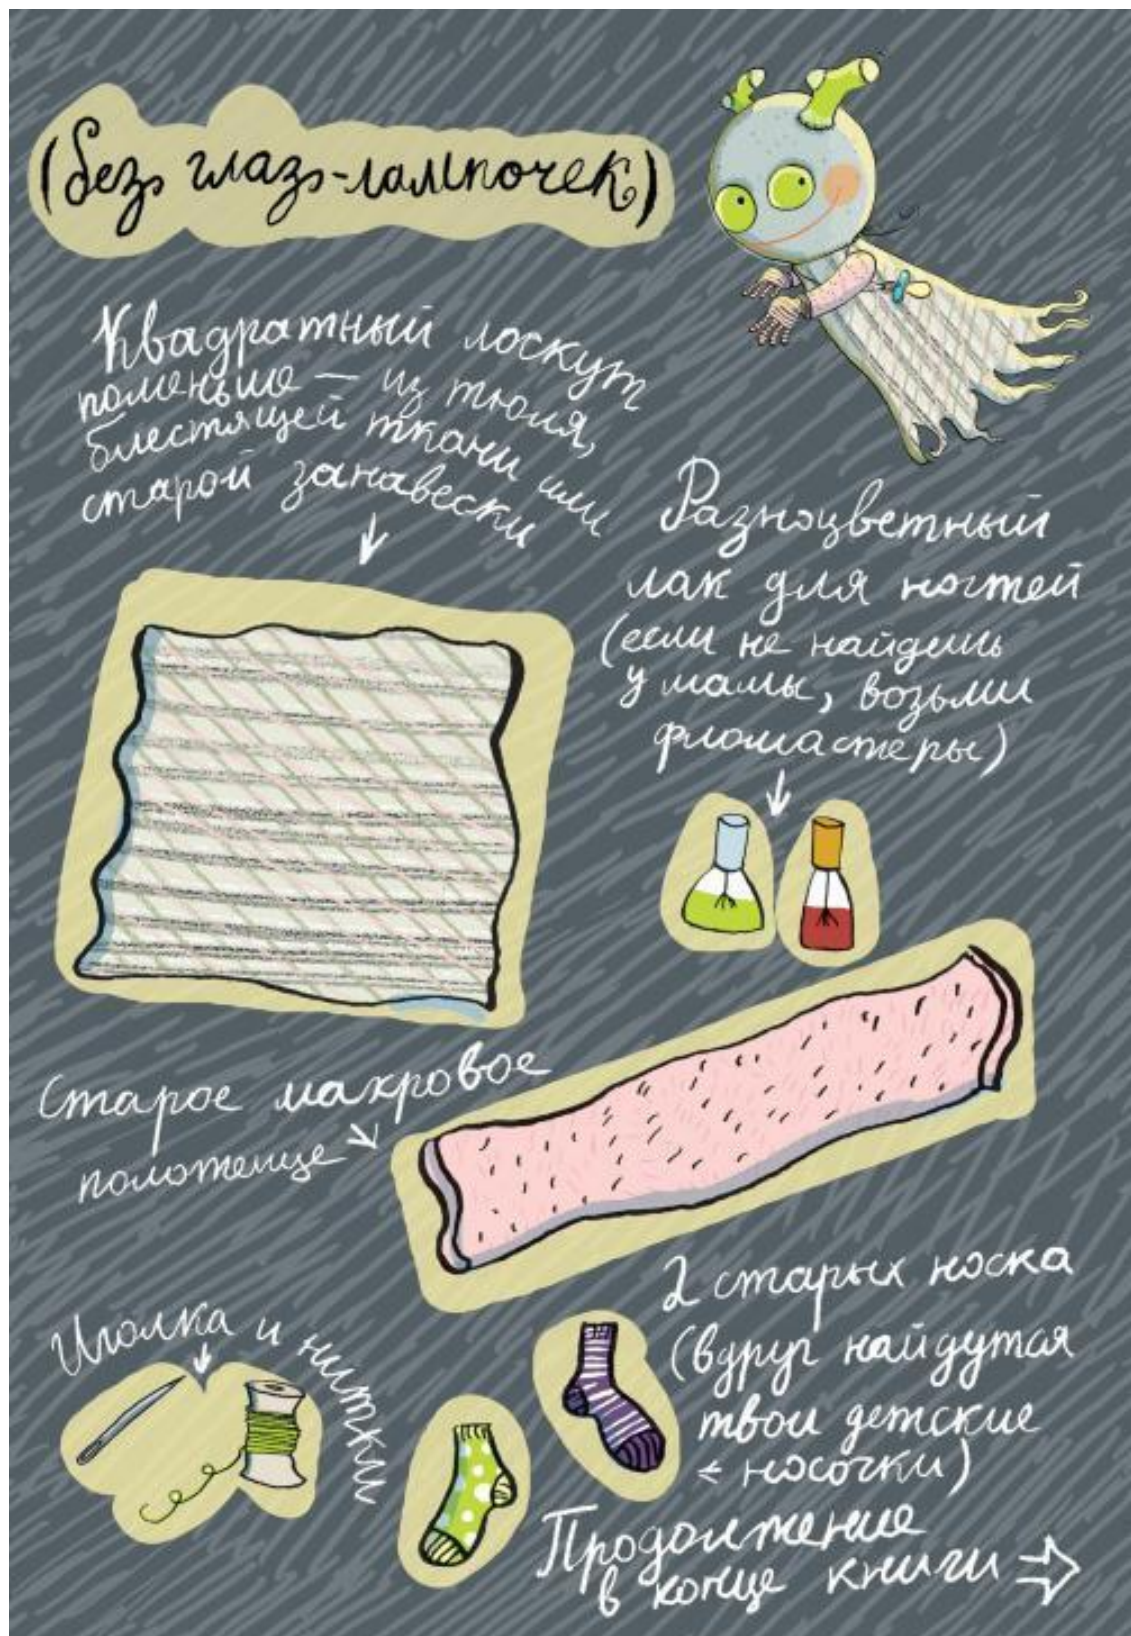 (без глаз-лампочек)
Квадратный лоскут
поменьше — из тюля,
блестящей ткани или
старой занавески
Разноцветный
лак для ногтей
(если не найдёшь
у мамы, возьми
фломастеры)
Старое махровое
полотенце
2 старых носка
(вдруг найдутся
твои детские
носочки)
Иголка и нитки
Продолжение
в конце книги